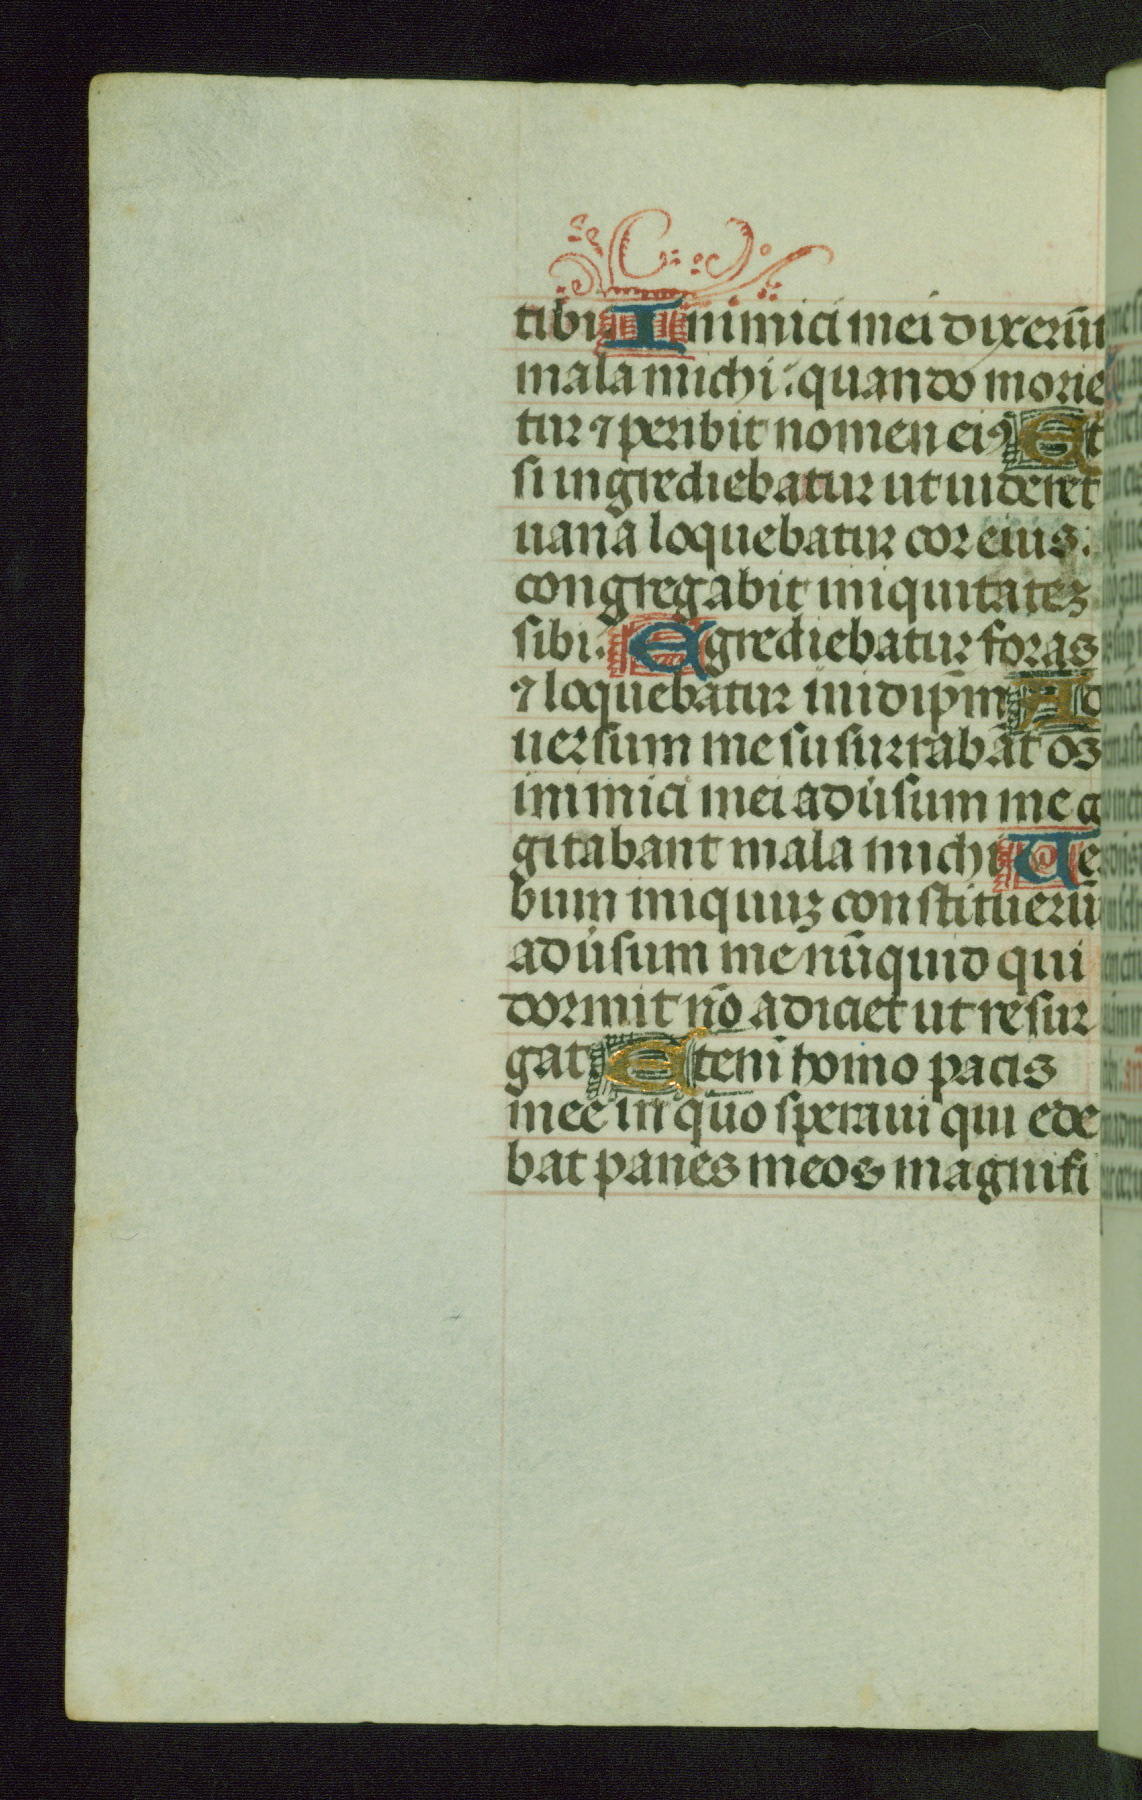 tibi. Inimici mei dixerūt
mala michi: quando morie
tur ⁊ peribit nomen eiꝰ Et
si ingrediebatur ut uideret
uana loquebatur cor eius:
congregabit iniquitateȝ
sibi. Egrediebatur foras
⁊ loquebatur in idip̄m Ad
uersum me susurrabāt os
inimici mei adūsum me co
gitabant mala michi Uer
bum iniquuȝ constituerūt
adūsum me nūquid qui
dormit nō adiciet ut resur
gat Etenī homo pacis
mee in quo speraui qui ede
bat panes meos magnifi